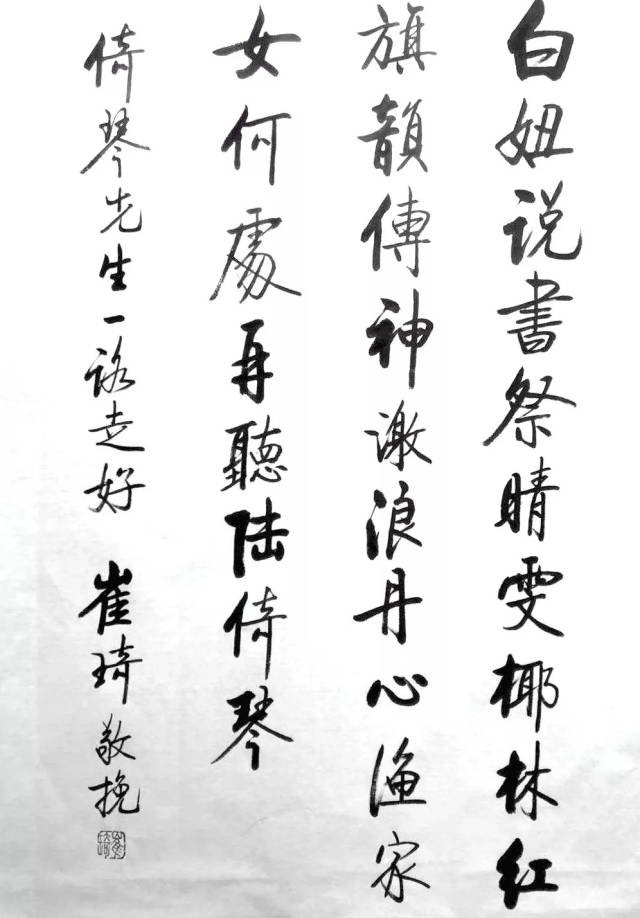 白妞说書祭晴雯椰林红
旗韻傳神激浪丹心渔家
女何處再聽陆倚琴
倚琴先生一路走好 崔琦敬挽